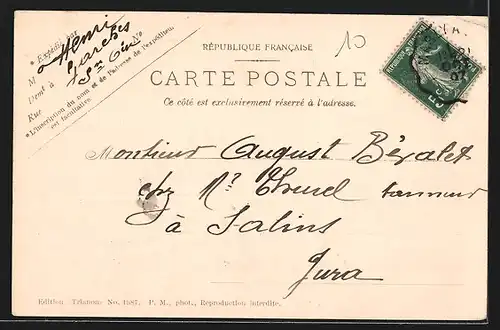 * Expédié par
M Henri
Demt à
Rue No
* L'inscription du nom et de l'adresse de l'expéditeur
est facultative.
10
RÉPUBLIQUE FRANÇAISE
CARTE POSTALE
Ce côté est exclusivement réservé à l'adresse.
Monsieur August
chez Mr tanneur
à Salins
Jura
Edition P. M., phot., Reproduction interdite.